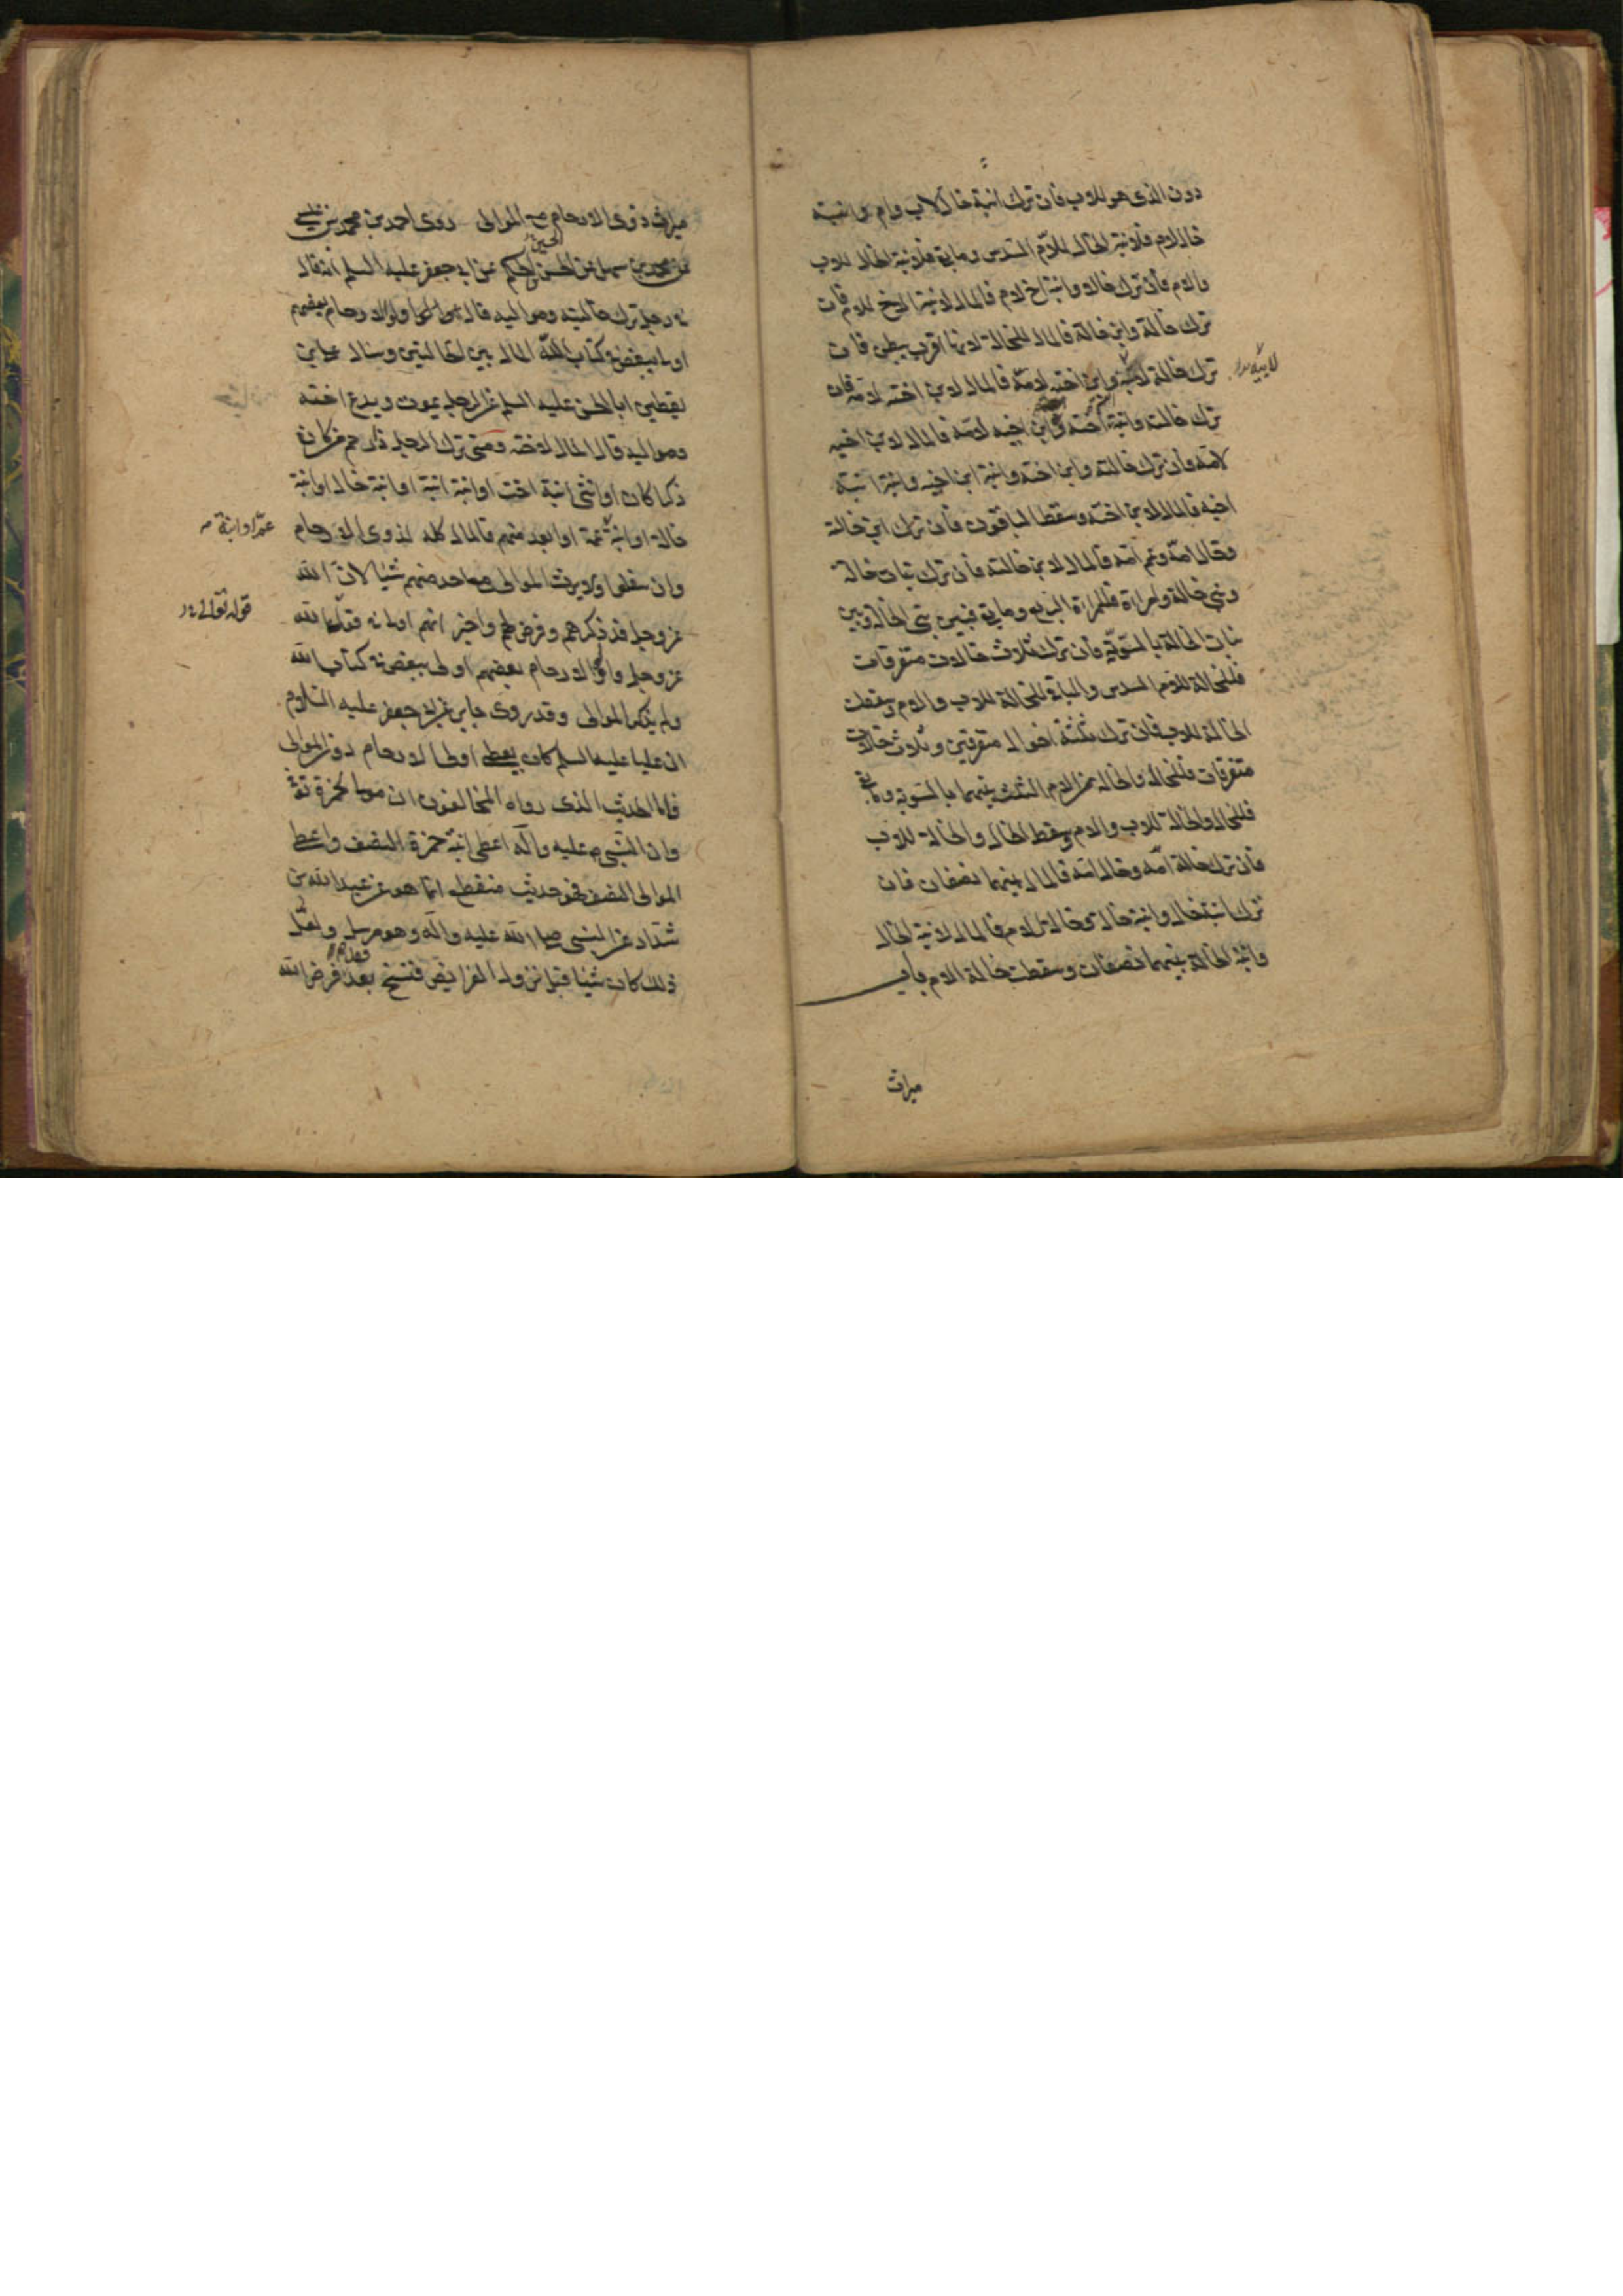 دون الذى هو للاب فان ترك ابنة خال لاب وام وابنة
خال لام فلابنة الخال للام السدس وما بقى فلابنة الخال للاب
والام فان ترك خالا وابنة اخ لام فالمال لابنة الاخ للام فان
ترك خالة وابن خالة فالمال للخالة لانها اقرب ببطن فان
ترك خالة وابن اخته لامه فالمال لابن اخته لامه فان
ترك خالته وابنة اخته وابن اخيه لامه فالمال لابن اخيه
لامه وان ترك خالته وابن اخته وابنة ابن اخيه وابنة ابنة
اخيه فالمال لابن اخته وسقط الباقون فان ترك ابن خالة
وخال امه وعم امه فالمال لابن خالته فان ترك بنات خالة
وبنى خالة وامراة فللمراة الربع وما بقى فبين بنى الخالة وبين
بنات الخالة بالسوية فان ترك ثلاث خالات متفرقات
فللخالة للام السدس والباقى للخالة للاب والام وسقطت
الخالة للاب فان ترك ثلثة اخوال متفرقين وثلاث خالات
متفرقات فللخال والخالة من الام الثلث بينهما بالسوية وما بقى
فللخال والخالة للاب والام وسقط الخال والخالة للاب
فان ترك خالة امه وخال امه فالمال بينهما نصفان فان
ترك ابنة خال وابنة خالة وخالة لام فالمال لابنة الخال
وابنة الخالة بينهما نصفان وسقطت خالة الام باب
ميراث
ميراث ذوى الارحام مع الموالى روى احمد بن محمد بن عيسى
عن محمد بن سهل عن الحسن بن الحكم عن ابى جعفر عليه السلم انه قال
فى رجل ترك خالتيه ومواليه قال اولوا الارحام بعضهم
اولى ببعض فى كتاب الله المال بين الخالتين وسال على بن
يقطين ابا الحسن عليه السلم عن الرجل يموت ويدع اخته
ومواليه قال المال لاخته ومتى ترك الرجل ذا رحم من كان
ذكرا كان او انثى ابنة اخت او ابنة ابنة او ابنة خال او ابنة
خالة او ابنة عمة او ابعد منهم فالمال كله لذوى الارحام
عم او ابنة
وان سفلوا ولا يرث الموالى مع احد منهم شيئا لان الله
عز وجل قد ذكرهم وفرض لهم واخبر انهم اولى فى قوله
قوله تعالى
عز وجل واولوا الارحام بعضهم اولى ببعض فى كتاب الله
ولم يذكر الموالى وقد روى جابر عن ابى جعفر عليه السلام
ان عليا عليه السلم كان يعطى اولى الارحام دون الموالى
فاما الحديث الذى رواه المخالفون ان مولى لحمزة توفى
وان النبى ص عليه واله اعطى ابنة حمزة النصف واعطى
الموالى النصف فهو حديث منقطع انما هو عن عبد الله بن
شداد عن النبى صلى الله عليه واله وهو مرسل ولعل
ذلك كان شيئا قبل نزول الفرايض فنسخ فرض الله